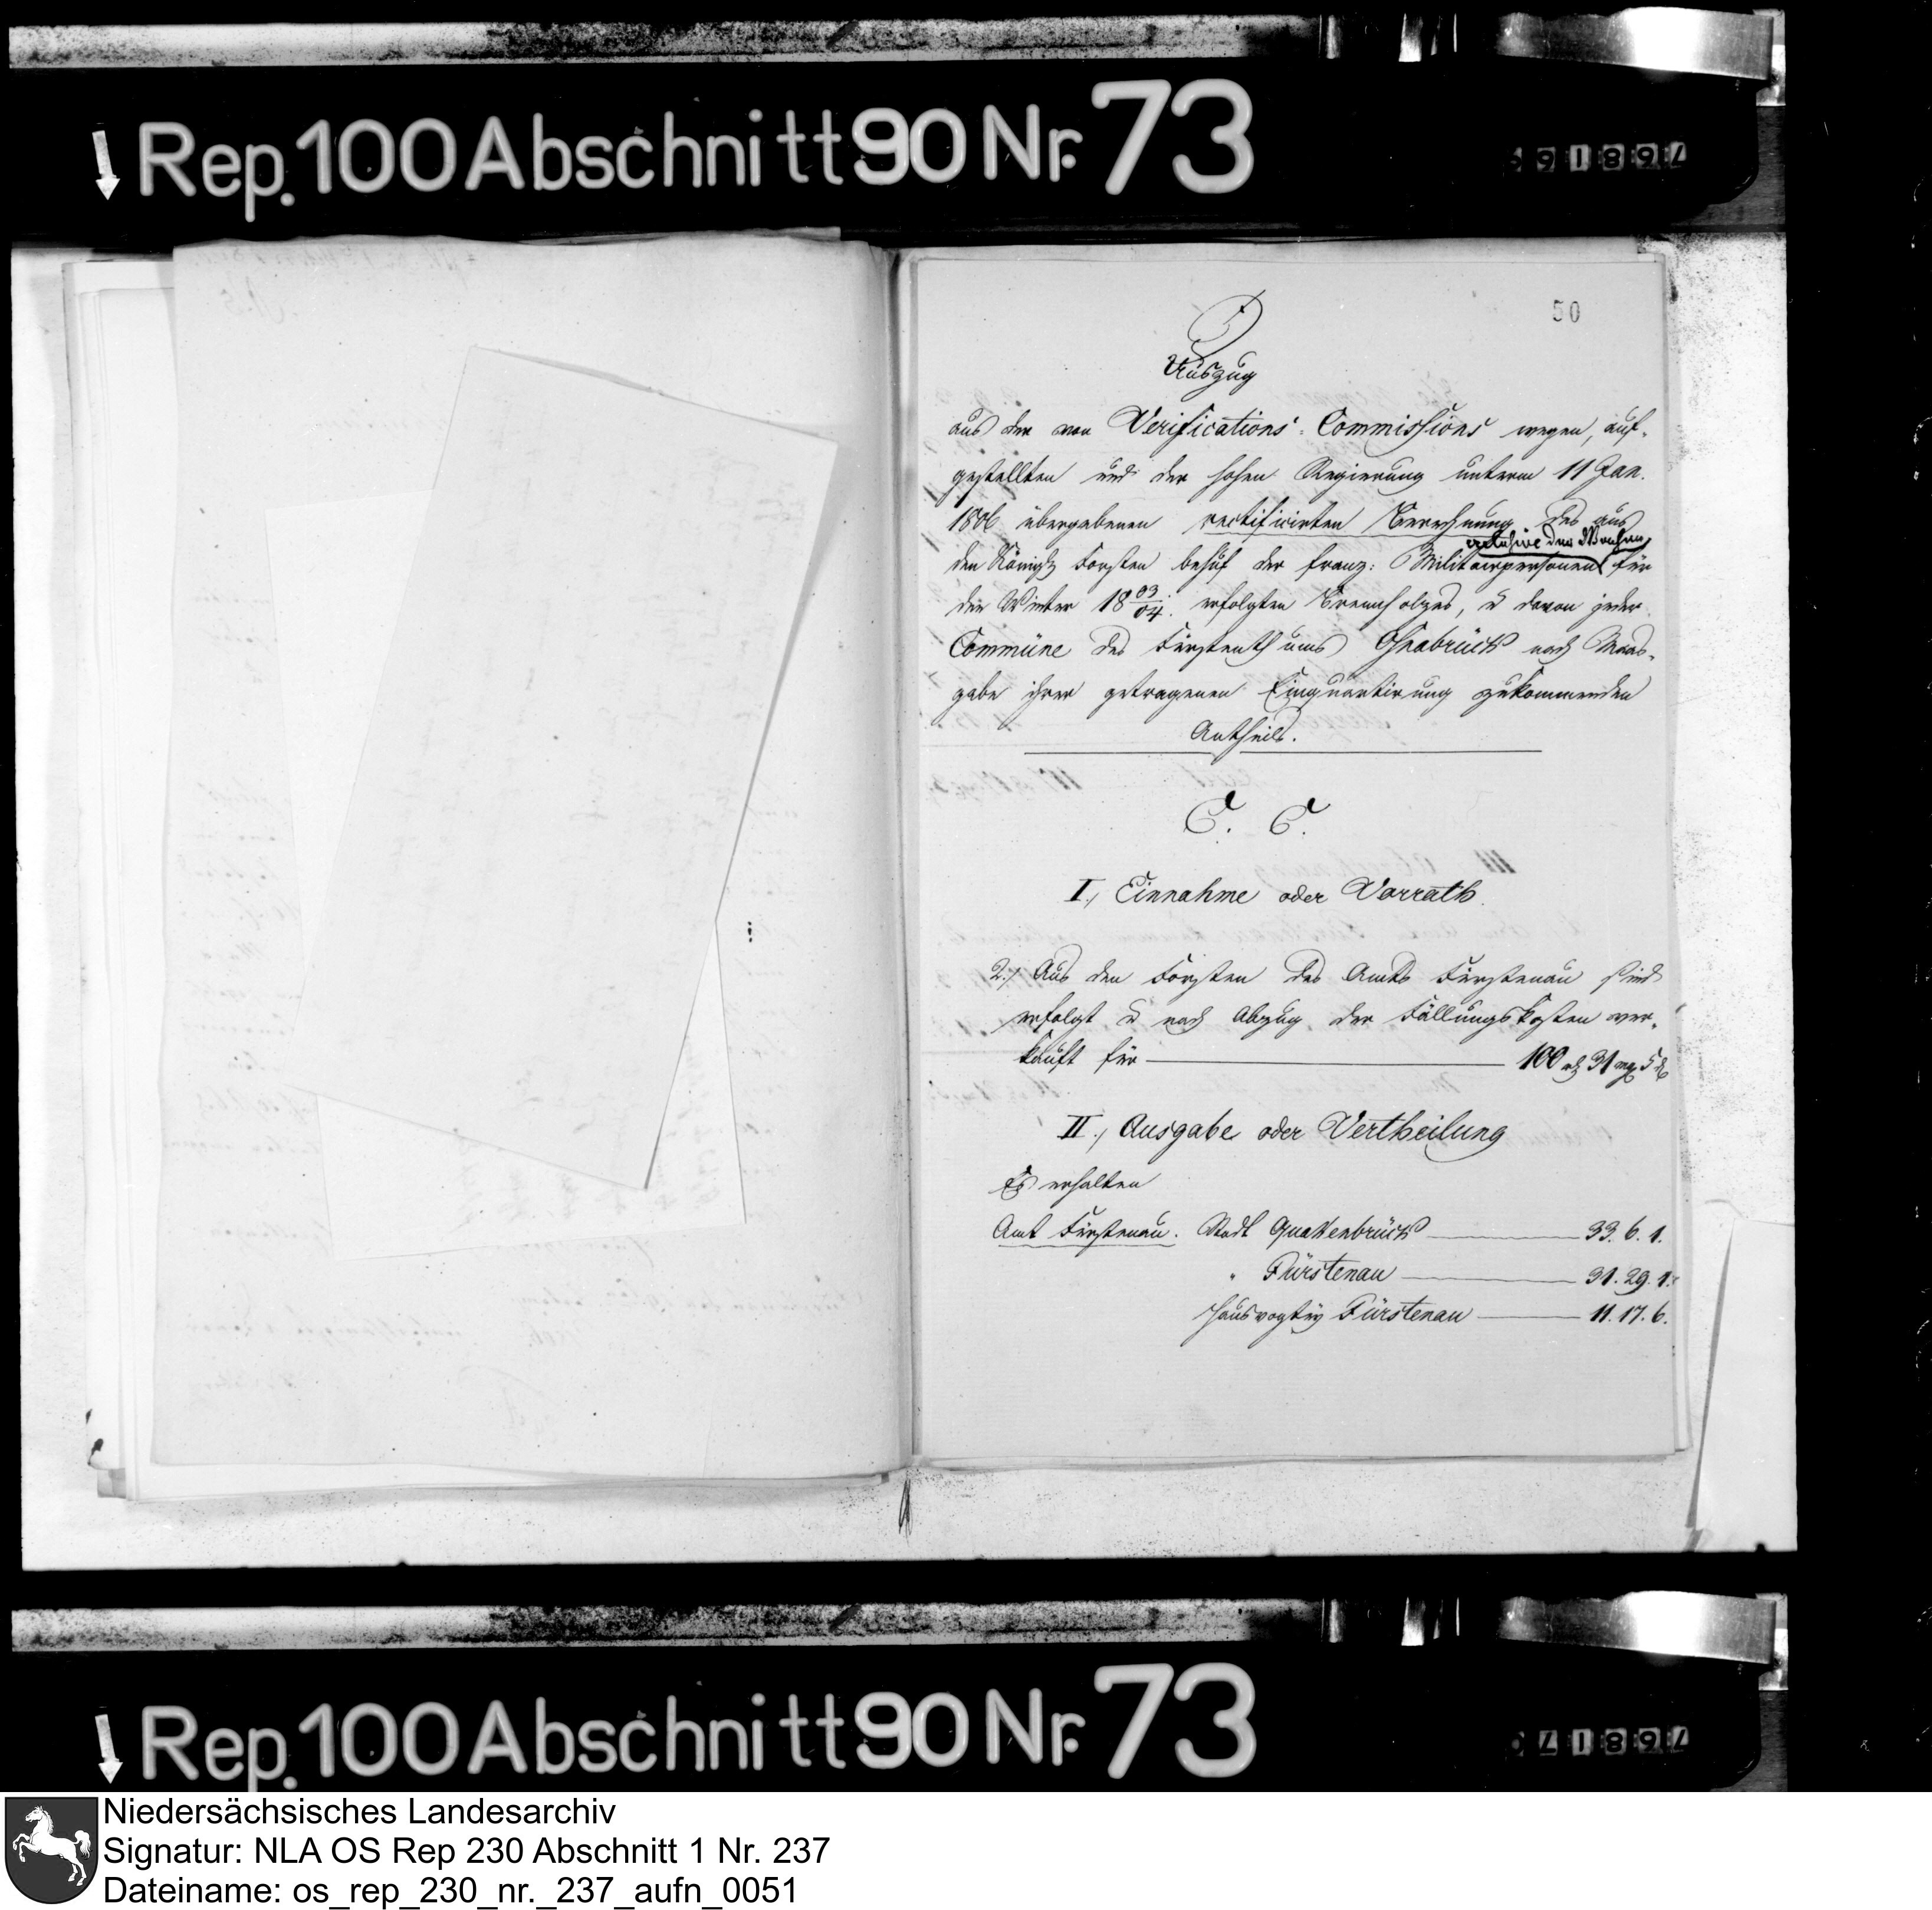 Rep. 100 Abschnitt 90 Nr. 73
50
Auszug
aus der von Verifications-Commissions wegen, auf-
gestellten und der hohen Regierung unterm 11 Jan.
1806 übergebenen rectificirten Berechnung des aus
exclusive der Wachen
den Königl Forsten behuf der franz: Militairpersonen für
den Winter 18 03/04. erfolgten Brennholzes, u davon jeder
Commüne des Fürstenthums Osnabrück nach Maas-
gabe ihrer getragenen Einquartirung zukommenden
Antheils.
C. C.
I., Einnahme oder Vorrath.
2., Aus den Forsten des Amts Fürstenau sind
erfolgt u nach Abzug der Fällungskosten ver-
kauft für 100 rt 31 mg 5 d
II., Ausgabe oder Vertheilung
Es erhalten
Amt Fürstenau. Stadt Quakenbrück 33. 6. 1.
" Fürstenau 31. 29. 1.
Hausvogtey Fürstenau 11. 17. 6.
Rep. 100 Abschnitt 90 Nr. 73
Niedersächsisches Landesarchiv
Signatur: NLA OS Rep 230 Abschnitt 1 Nr. 237
Dateiname: os_rep_230_nr._237_aufn_0051